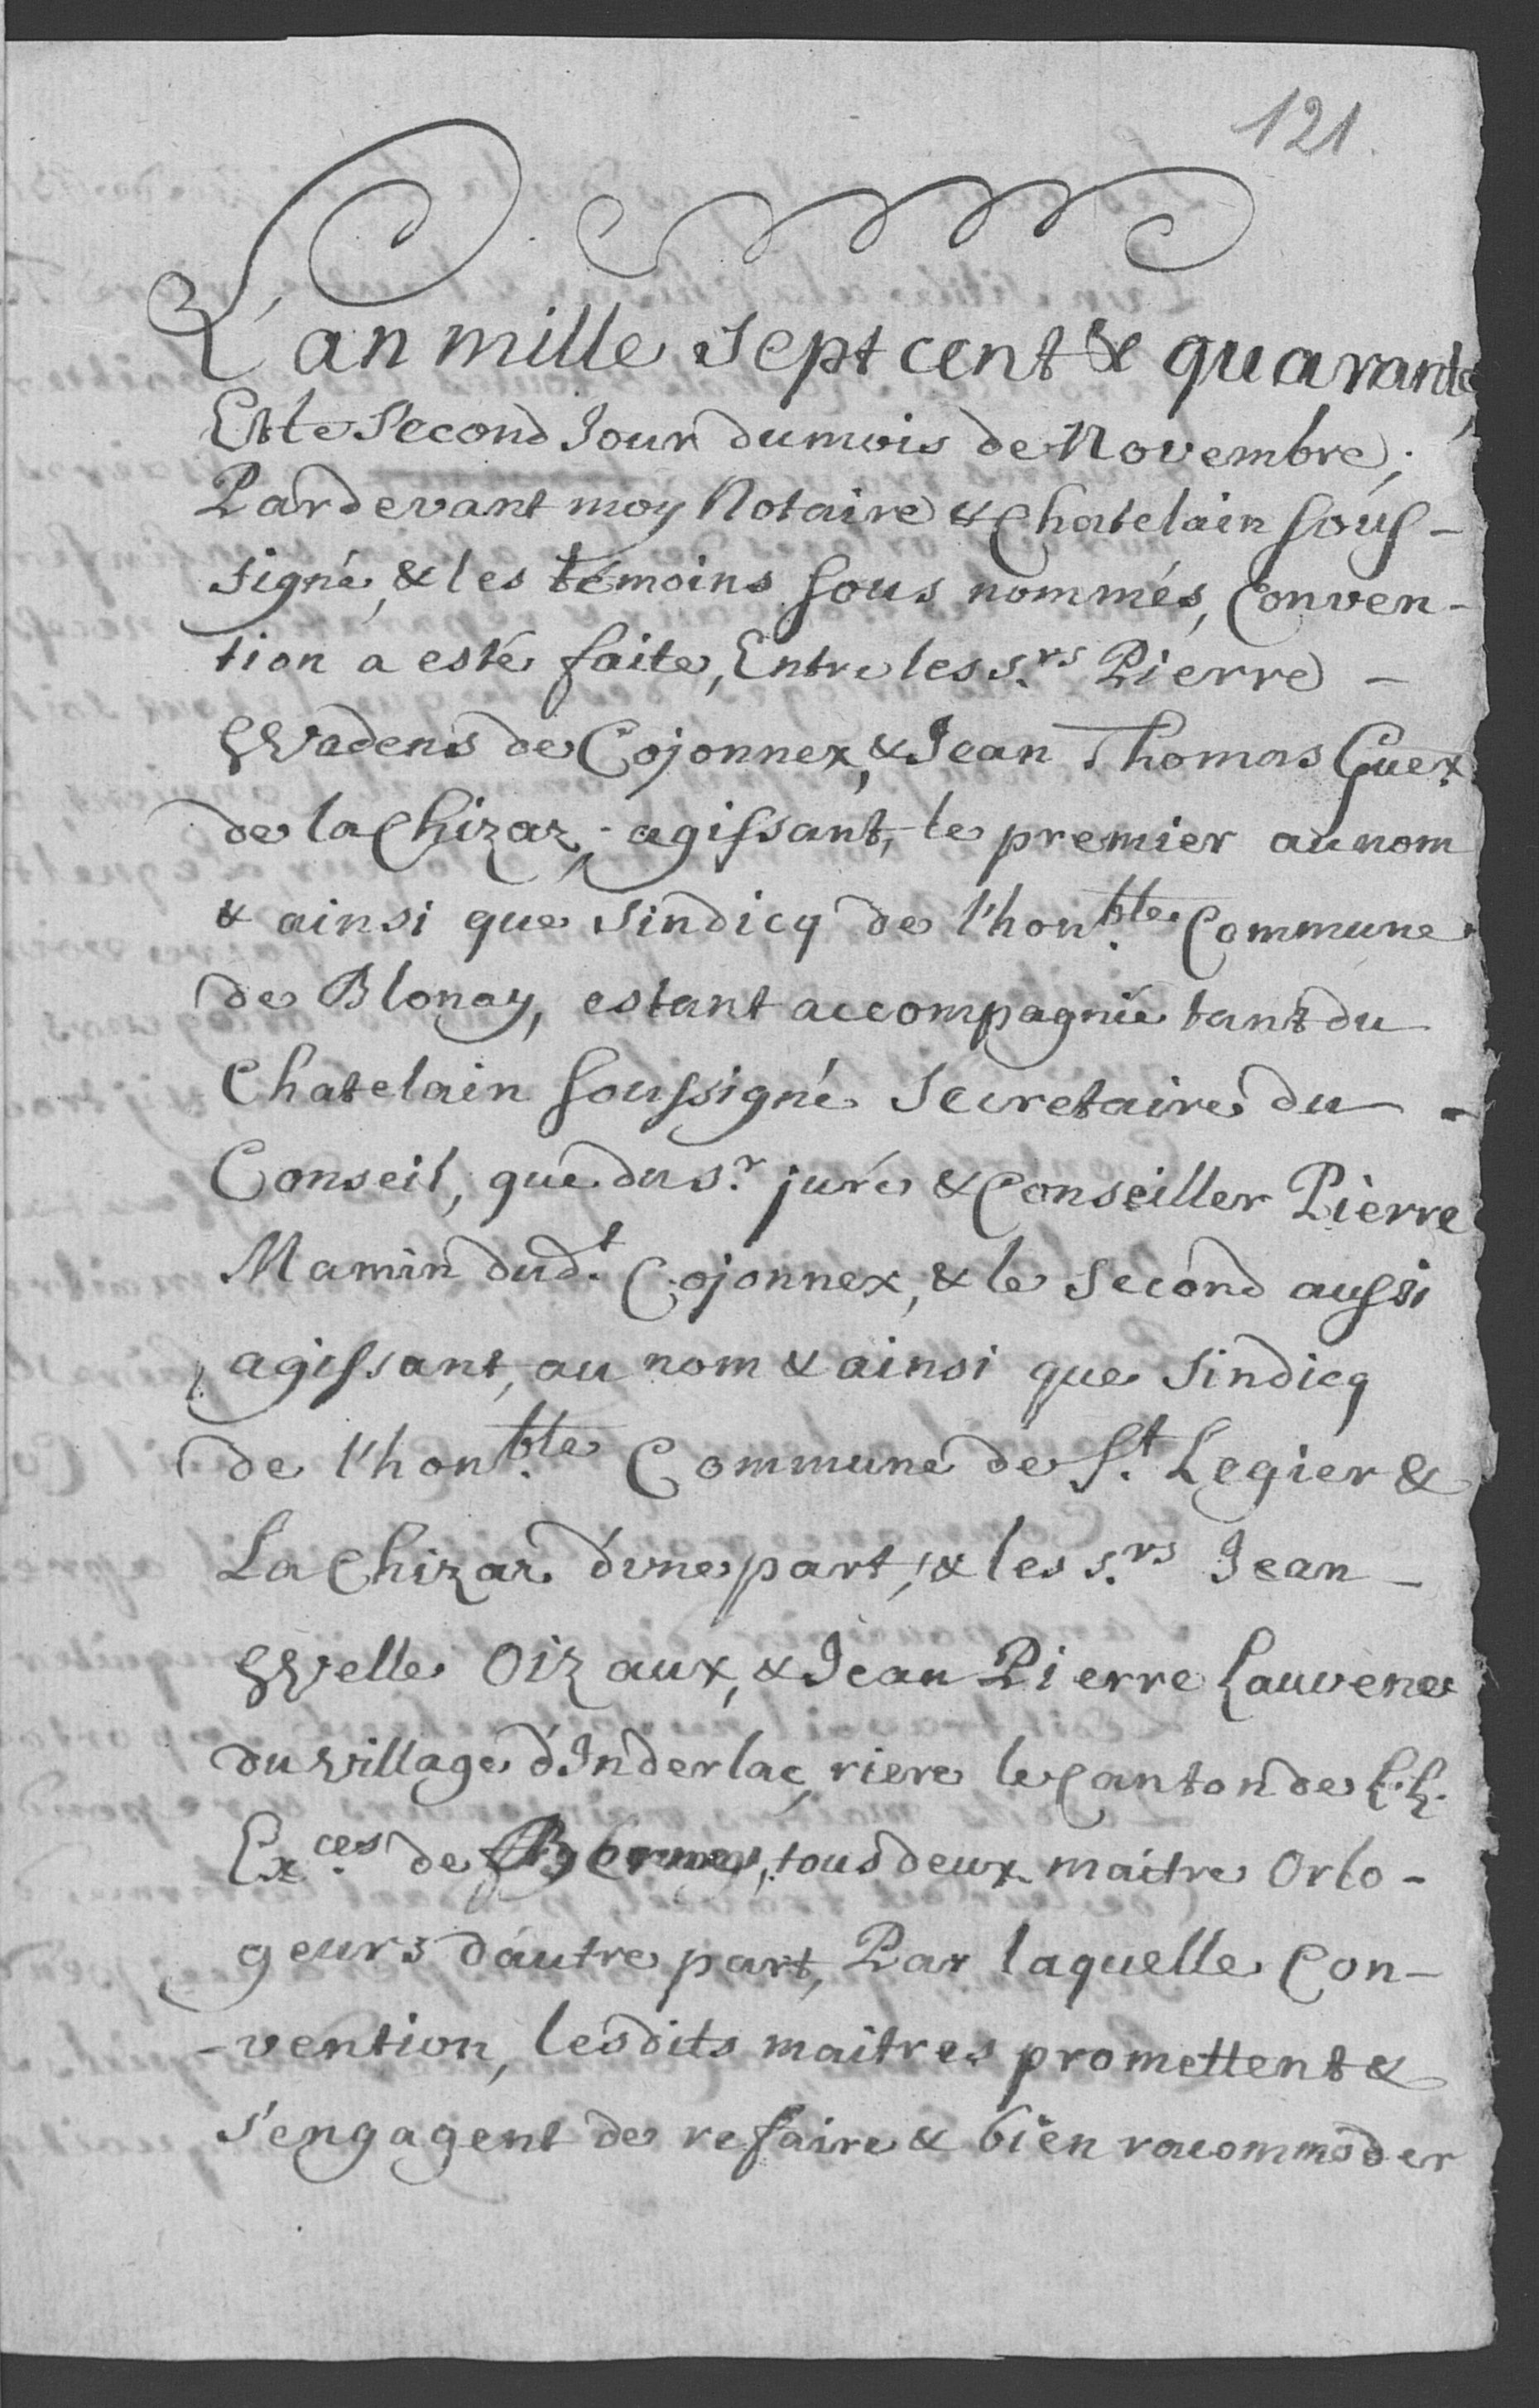 121.
L'an mille sept cent & quarante,
Et le second Jour du mois de Novembre;
Pardevant moy Notaire & Chatelain sous-
signé, & les témoins sous nommés, Conven-
tion a esté faite, Entre les s.rs Pierre -
Wadens de Cojonnex, & Jean Thomas Guex
de la Chizaz; agissant, le premier au nom
& ainsi que sindicq de l'hon.ble Commune
de Blonay, estant accompagnié tant du
Chatelain soussigné Secretaire du -
Conseil, que du s.r juré & Conseiller Pierre
Mamin dud.t Cojonnex, & le second aussi
agissant, au nom & ainsi que sindicq
de l'hon.ble Commune de S.t Legier &
La Chizaz d'une part; & les s.rs Jean -
Welle Oizaux, & Jean Pierre Lauvene
du village d'Inderlac, riere le Canton de L.L.
Ex.ces de Berne, tous deux maitre Orlo-
geurs d'autre part, Par laquelle Con-
-vention, lesdits maitres promettent &
s'engagent de refaire & bien racommoder